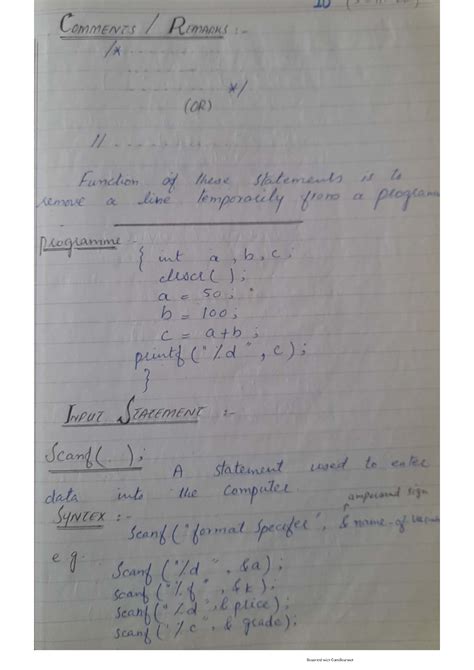 COMMENTS / REMARKS :-
/* . . . . . . . .
. . . . . . . .
. . . . . . . . */
(OR)
// . . . . . . . .
Function of these statements is to
remove a line temporarily from a programme
programme -
{ int a, b, c;
clrscr( );
a = 50;
b = 100;
c = a+b;
printf("%d", c);
}
INPUT STATEMENT :-
Scanf(...);
A statement used to enter
data into the Computer
ampersand sign
SYNTEX :-
Scanf("format Specifer", & name-of
e.g.
Scanf("%d", &a);
scanf("%f", &k);
scanf("%d", & price);
scanf("%c", & grade);